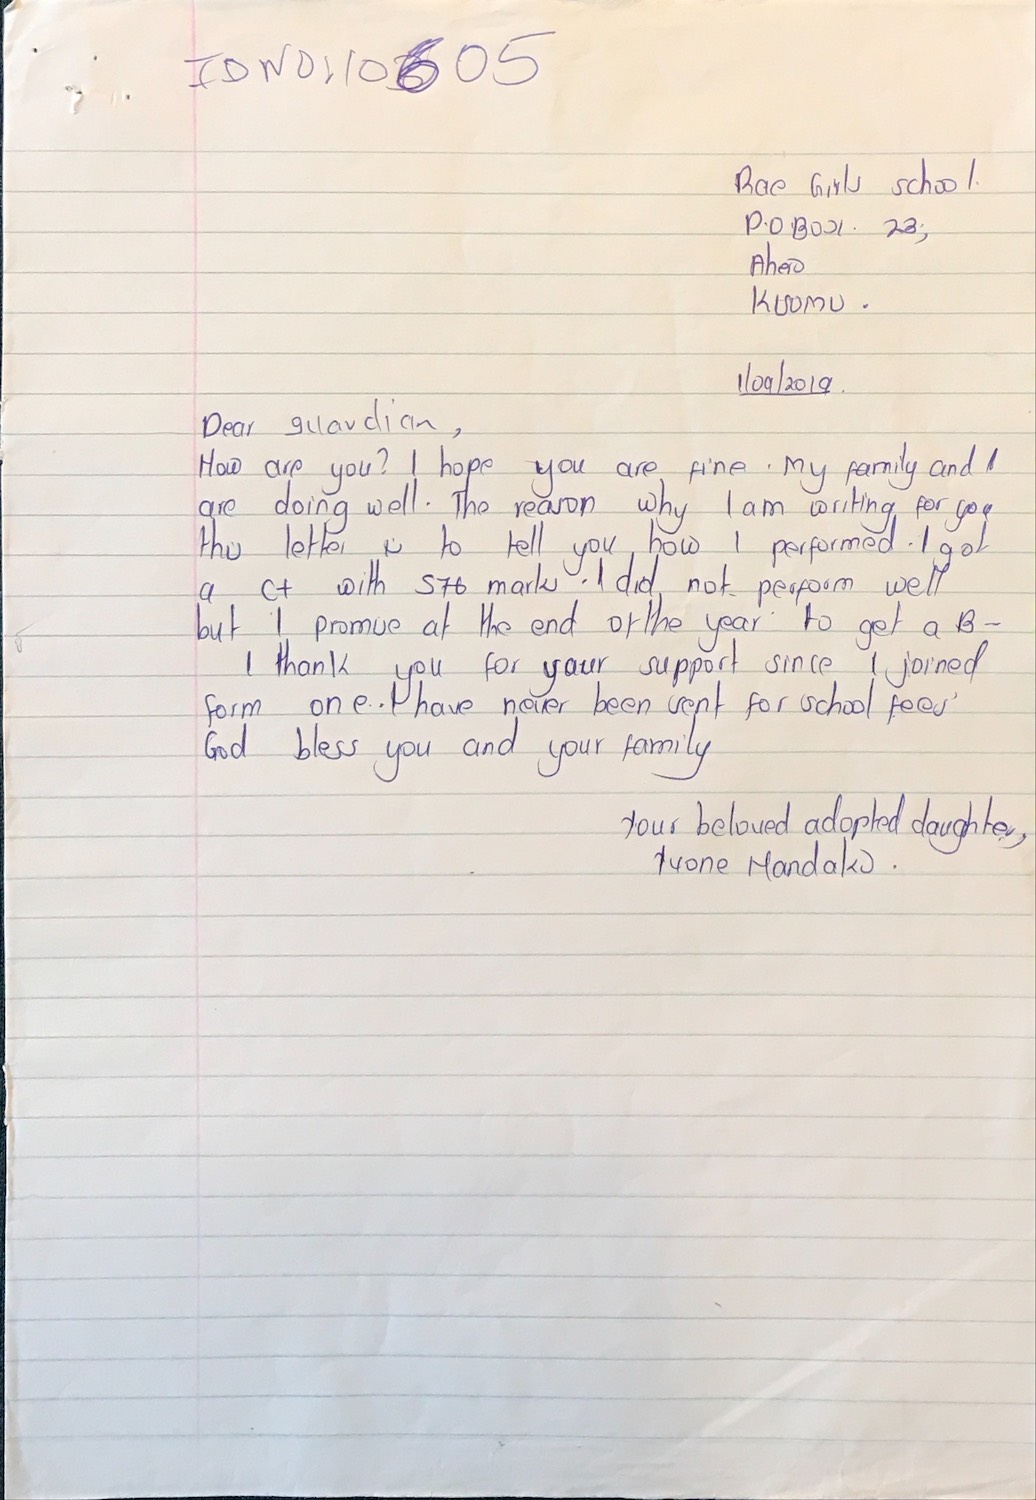 IDNO110605
Rae Girls school.
P.O BOX. 23,
Ahero
Kisumu.
1/09/2019.
Dear guardian,
How are you? I hope you are fine. My family and I
are doing well. The reason why I am writing for you
this letter is to tell you how I performed. I got
a C+ with 576 marks. I did not perform well
but I promise at the end of the year to get a B-
I thank you for your support since I joined
form one. I have never been sent for school fees.
God bless you and your family
Your beloved adopted daughter,
Yvone Mandako.